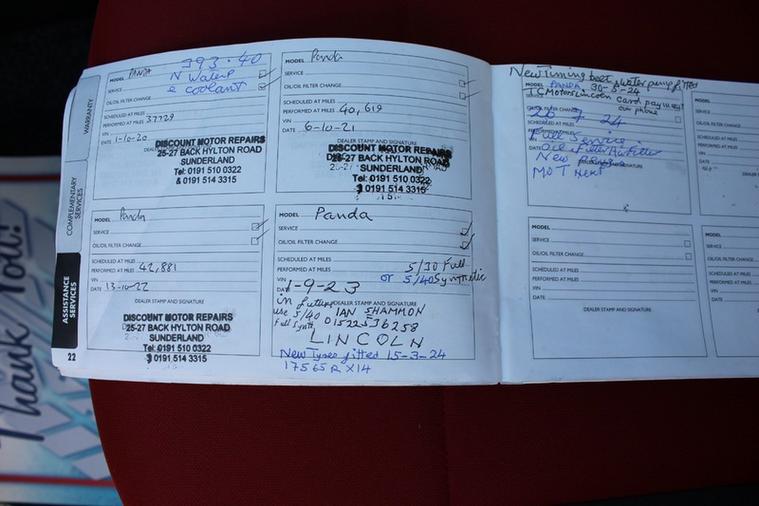 WARRANTY
COMPLEMENTARY
SERVICES
ASSISTANCE
SERVICES
22
Thank You!
393.40
MODEL PANDA
N WaterP
& coolant
SERVICE
OIL/OIL FILTER CHANGE
SCHEDULED AT MILES
PERFORMED AT MILES 37729
VIN
DATE 1-10-20
DISCOUNT MOTOR REPAIRS
25-27 BACK HYLTON ROAD
SUNDERLAND
Tel: 0191 510 0322
& 0191 514 3315
MODEL Panda
SERVICE
OIL/OIL FILTER CHANGE
SCHEDULED AT MILES
PERFORMED AT MILES 40,619
VIN
DATE 6-10-21
DEALER STAMP AND SIGNATURE
DISCOUNT MOTOR REPAIRS
25-27 BACK HYLTON ROAD
SUNDERLAND
Tel: 0191 510 0322
& 0191 514 3315
MODEL Panda
SERVICE
OIL/OIL FILTER CHANGE
SCHEDULED AT MILES
PERFORMED AT MILES 42,881
VIN
DATE 13-10-22
DEALER STAMP AND SIGNATURE
DISCOUNT MOTOR REPAIRS
25-27 BACK HYLTON ROAD
SUNDERLAND
Tel: 0191 510 0322
& 0191 514 3315
MODEL Panda
SERVICE
OIL/OIL FILTER CHANGE
SCHEDULED AT MILES
PERFORMED AT MILES 5/30 Full
VIN or 5/40 Synthetic
DATE 1-9-23
in future DEALER STAMP AND SIGNATURE
use 5/40 IAN SHAMMON
Full Synth 01522536258
LINCOLN
New Tyres fitted 15-3-24
175 65 R X14
New Timing belt & water pump fitted
MODEL PANDA 30-5-24
T C Motors Lincoln Card payment
on phone
OIL/OIL FILTER CHANGE
26 9 24
SCHEDULED AT MILES
Full Service
Oil & Filter Air Filter
New
MOT Next
MODEL
SERVICE
OIL/OIL FILTER CHANGE
SCHEDULED AT MILES
PERFORMED AT MILES
VIN
DATE
DEALER STAMP AND SIGNATURE
MODEL
SERVICE
OIL/OIL FILTER
SCHEDULED AT
PERFORMED AT
VIN
DATE
MODEL
SERVICE
OIL/OIL FILTER
SCHEDULED AT
PERFORMED AT
VIN
DATE